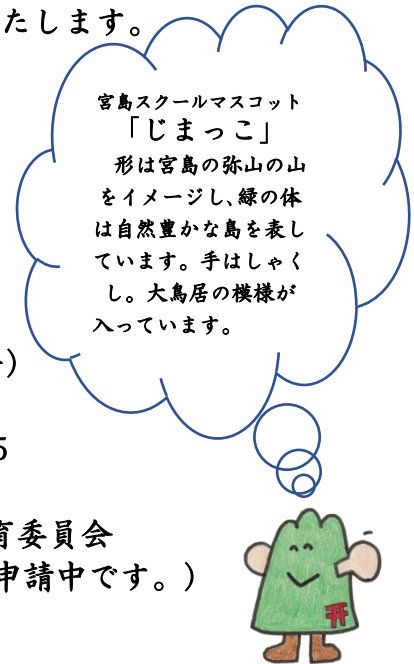 たします。
宮島スクールマスコット
「じまっこ」
形は宮島の弥山の山
をイメージし、緑の体
は自然豊かな島を表し
ています。手はしゃく
し。大鳥居の模様が
入っています。
)
5
育委員会
申請中です。)